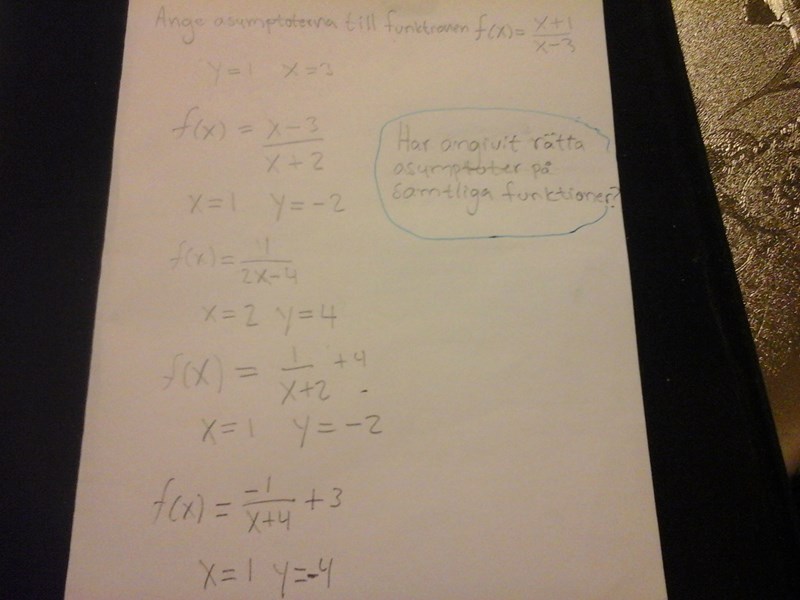 Ange asumptoterna till funktionen f(x) = x+1 / x-3
y=1 x=3
f(x) = x-3 / x+2
x=1 y=-2
Har angivit rätta
asumptoter på
samtliga funktioner?
f(x) = 4 / 2x-4
x=2 y=4
f(x) = 1 / x+2 +4
x=1 y=-2
f(x) = -1 / x+4 +3
x=1 y=-4